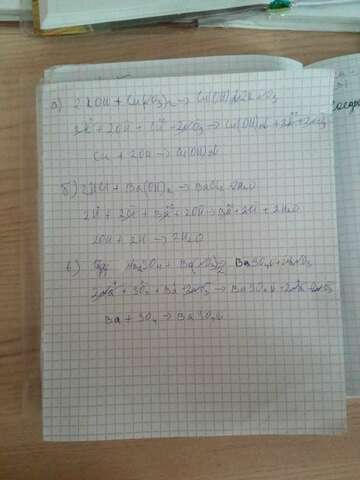 а) 2KOH + Cu(NO₃)₂ → Cu(OH)₂↓ + 2KNO₃
2K⁺ + 2OH⁻ + Cu²⁺ + 2NO₃⁻ → Cu(OH)₂↓ + 2K⁺ + 2NO₃⁻
Cu + 2OH → Cu(OH)₂↓
б) 2HCl + Ba(OH)₂ → BaCl₂ + 2H₂O
2H + 2Cl + Ba + 2OH → Ba + 2Cl + 2H₂O
2OH + 2H → 2H₂O
в) Na₂SO₄ + Ba(NO₃)₂ → BaSO₄↓ + 2NaNO₃
2Na + SO₄ + Ba + 2NO₃ → BaSO₄↓ + 2Na + 2NO₃
Ba + SO₄ → BaSO₄↓